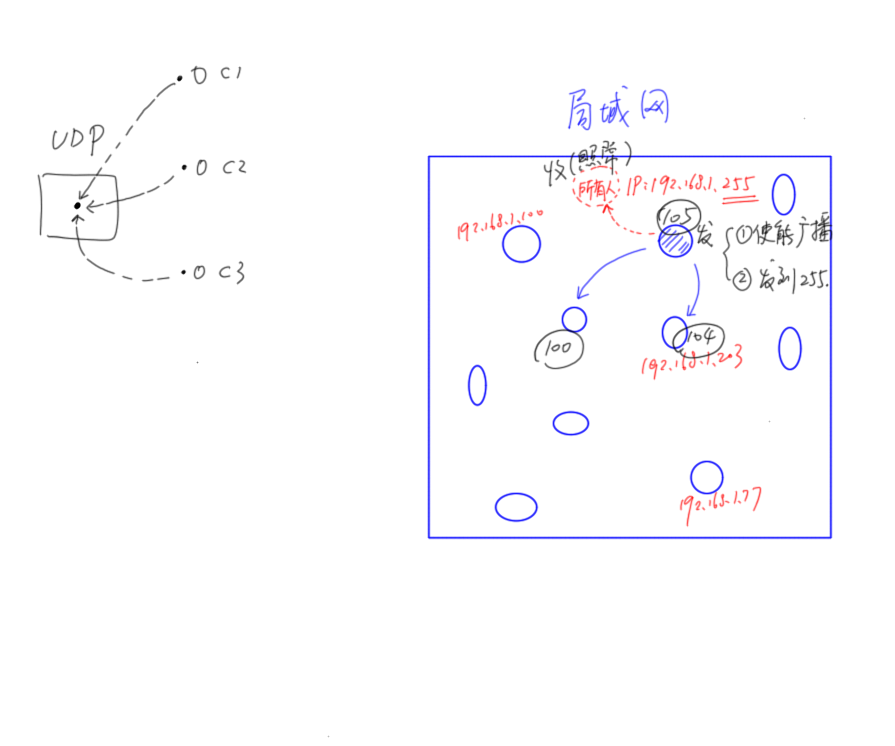 UDP
C1
C2
C3
局域网
收(照常)
所有人: IP:192.168.1.255
192.168.1.100
105
发
①使能广播
②发到255.
100
104
192.168.1.203
192.168.1.77